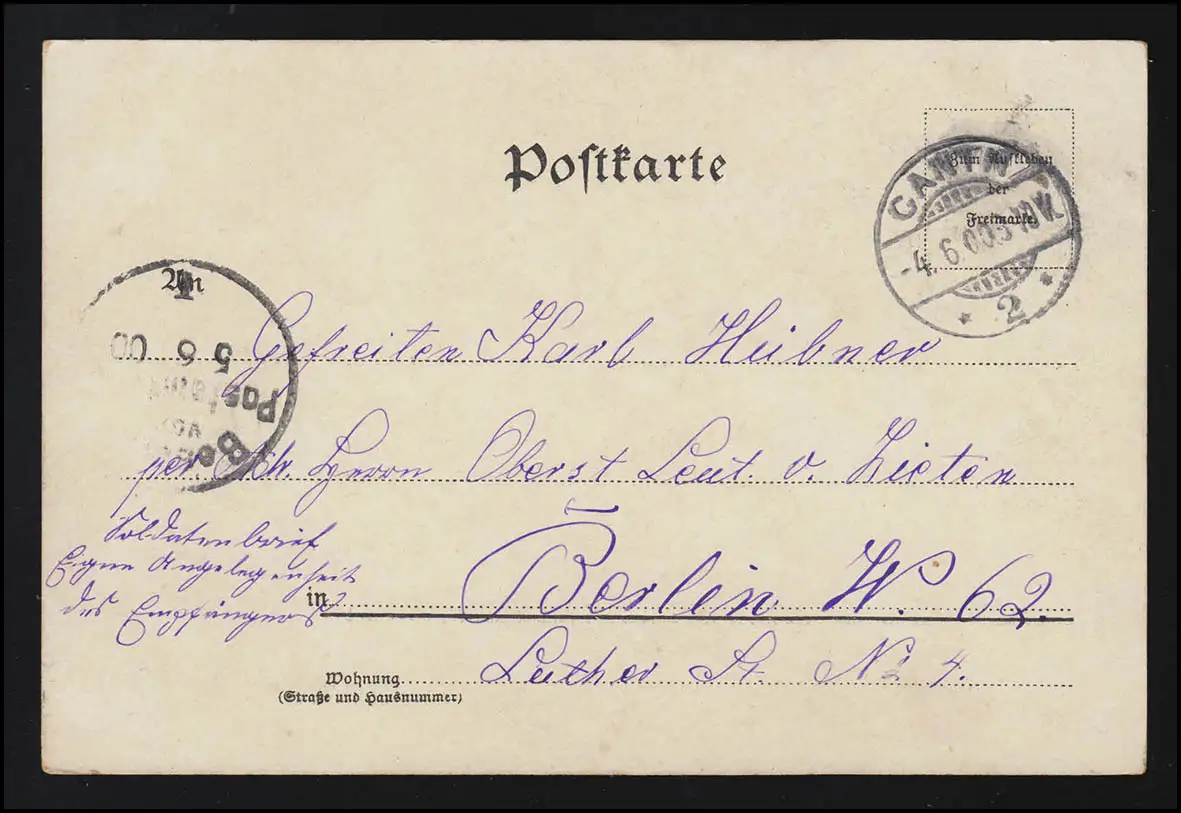 Postkarte
Zum Aufkleben
der
Freimarke.
CANTH
-4. 6 00 5-10 N
* 2 *
An
5 6 00
Gefreiten Karl Heibner
per. Adr. Herrn Oberst Leut. v. Zieten
Soldatenbrief
Eigene Angelegenheit
des Empfängers
in Berlin W. 62.
Wohnung Luther St. No 4.
(Straße und Hausnummer)